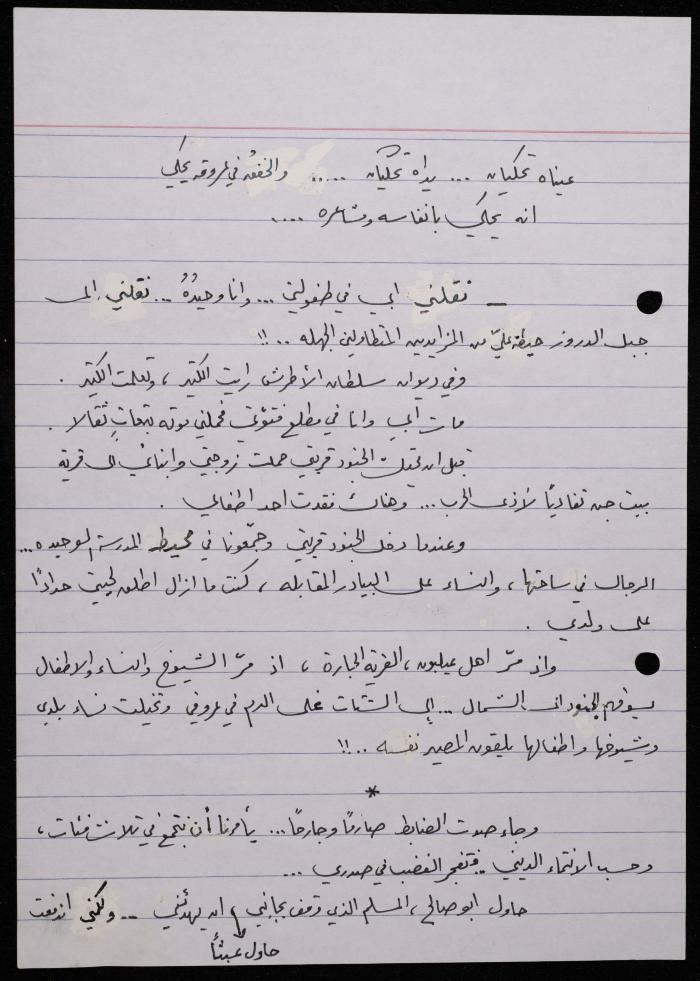 عيناه تحكيان ... يداه تحكيان ..... والخفقه في عروقه يحكي
انه يحكي بانفاسه ومشاعره ....
ـ نقلني ابي في طفولتي ... وانا وحيدُهُ ... نقلني إلى
جبل الدروز خيفة عليّ من المزايدين المتطاولين الجهله ..!!
وفي ديوان سلطان الأطرش رايت الكثير ، وتعلمت الكثير .
مات ابي وانا في مطلع فتوّتي فحملني موته تبعاتٍ ثقالا .
قبل ان تحتلّ الجنود قريتي حملت زوجتي وابنائي الى قرية
بيت جن تفادياً لأذى الحرب ... وهناك فقدت احد اطفالي .
وعندما دخل الجنود قريتي وجمّعونا في محيط المدرسة الوحيده ...
الرجال في ساحتها ، والنساء على البيادر المقابله ، كنت ما ازال اطلق لحيتي حداداً
على ولدي .
واذ مرّ اهل عيلبون ، القرية الجارة ، اذ مرّ الشيوخ والنساء والاطفال
يسوقهم الجنود الى الشمال ... إلى الشتات غلى الدم في عروقي وتخيلت نساء بلدي
وشيوخها واطفالها يلقون المصير نفسه ..!!
*
وجاء صوت الضابط صارماً وجارحاً ... يأمرنا أن نتجمع في ثلاث فئات ،
وحسب الانتماء الديني .. فتفجر الغضب في صدري ...
حاول ابو صالح ، المسلم الذي وقف بجانبي ، ان يهدئني ... ولكني اندفعت
حاول عبثاً